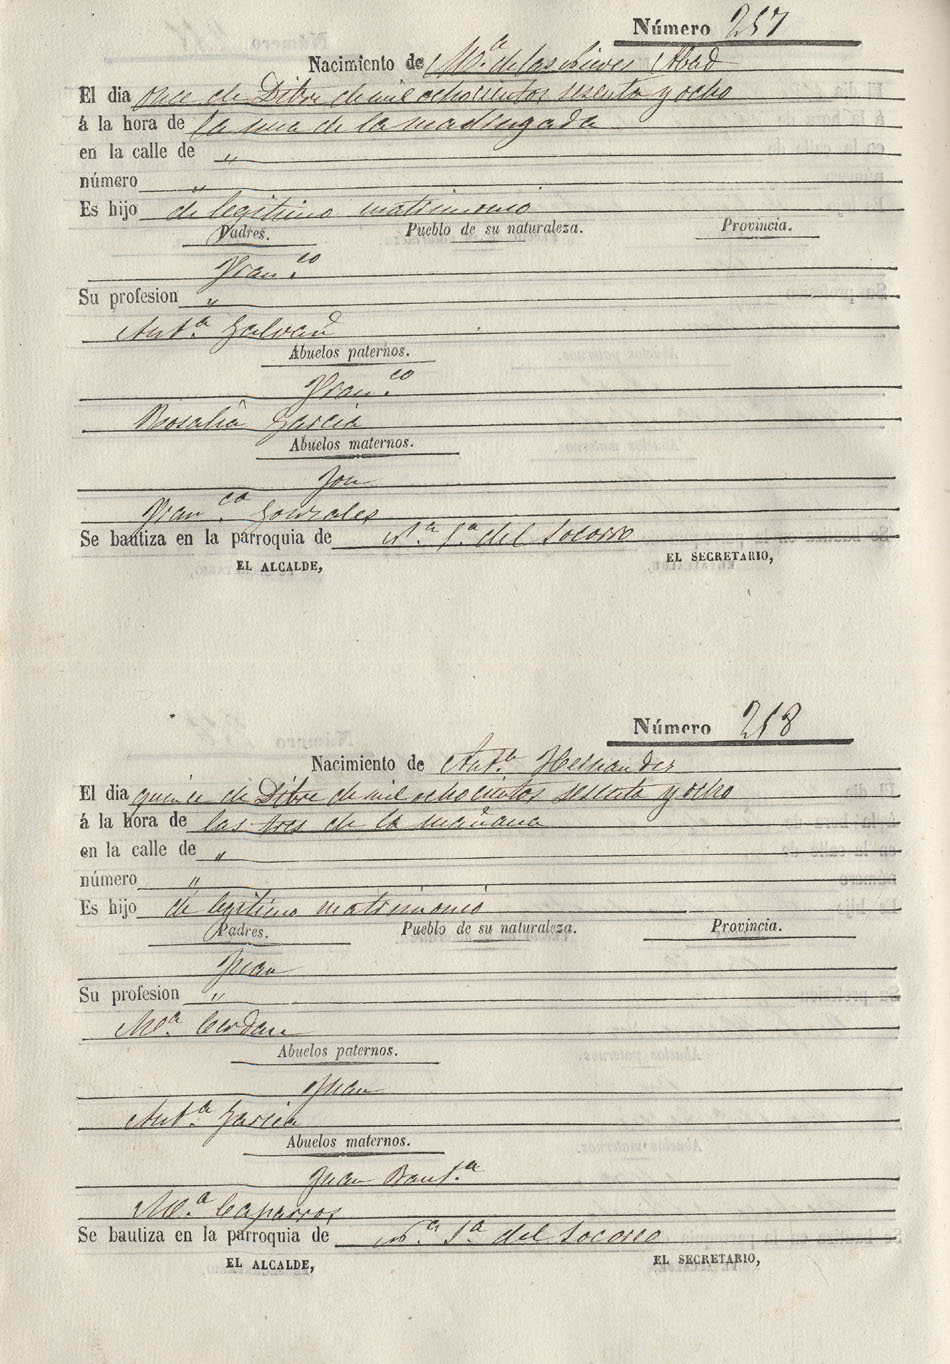 Número 257
Nacimiento de M.ª de las Nieves Abad
El dia once de Dibre de mil ochocientos sesenta y ocho
á la hora de la una de la madrugada
en la calle de „
número „
Es hijo de legitimo matrimonio
Padres. Pueblo de su naturaleza. Provincia.
Fran.co
Su profesion „
Ant.ª Galvañ
Abuelos paternos.
Fran.co
Rosalia Garcia
Abuelos maternos.
José
Fran.ca Gonzales
Se bautiza en la parroquia de N.ª S.ª del Socorro
EL ALCALDE, EL SECRETARIO,
Número 258
Nacimiento de Ant.ª Hernandez
El dia quince de Dibre de mil ochocientos sesenta y ocho
á la hora de las tres de la mañana
en la calle de „
número „
Es hijo de legitimo matrimonio
Padres. Pueblo de su naturaleza. Provincia.
Juan
Su profesion „
M.ª Cerdan
Abuelos paternos.
Juan
Ant.ª Garcia
Abuelos maternos.
Juan Baut.ª
M.ª Caparros
Se bautiza en la parroquia de N.ª S.ª del Socorro
EL ALCALDE, EL SECRETARIO,